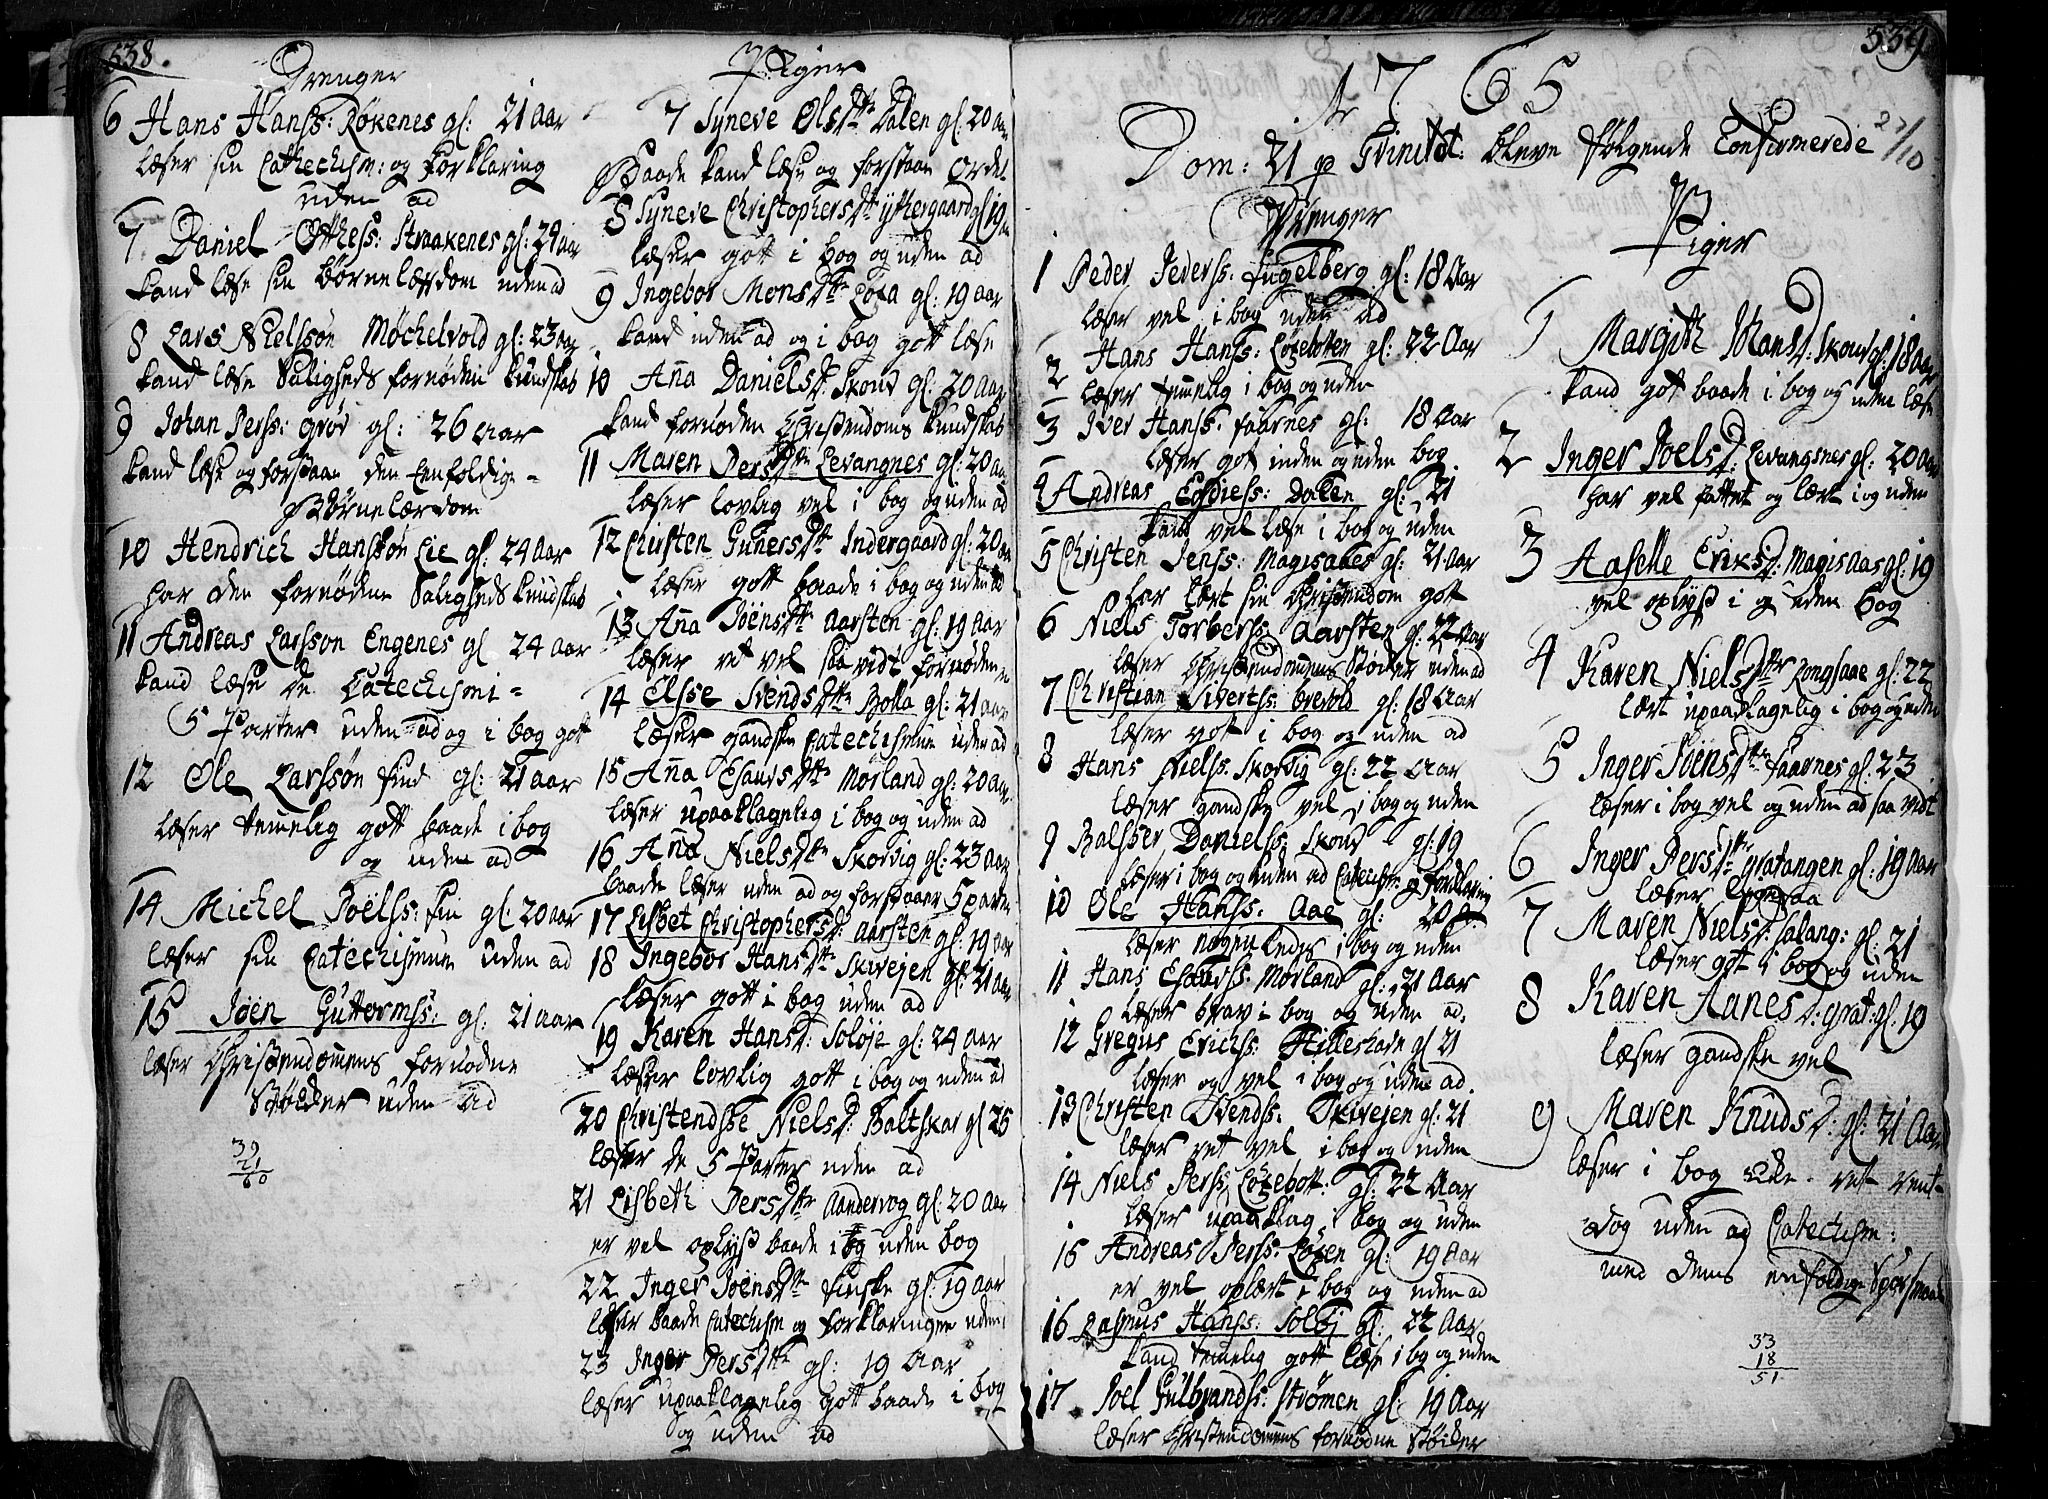 538.
Drenger
6 Hans Hanss: Røkenes gl: 21 aar
læser sin Cathechism: og Forklaring
uden ad
7 Daniel Otthess: Straakenes gl: 24 aar
kand læse sin børnelærdom uden ad
8 Lars Nielssøn Møchelvold gl: 23 aar
kand læse Saligheds fornøden kundskab
9 Johan Perss: Grov gl: 26 aar
kand læse og forstaar den Eenfoldige
Børnelærdom
10 Hendrich Hanssøn Lie gl: 24 aar
har den fornødne Saligheds kundskab
11 Andreas Larsson Engenes gl 24 aar
kand læse de Catechismi
5 Parter uden ad og i bog got
12 Ole Larssøn find gl: 21 aar
læser temelig gott baade i bog
og uden ad
14 Michel Joelss: fin gl: 20 aar
læser sin Catechismum uden ad
15 Joen Guttormss: gl: 21 aar
læser Christendommens fornødne
Støcker uden ad
39
21
60
Piger
7 Syneve Olsdtr Dalen gl: 20 aar
Baade kand læse og forstaar Ordet
8 Syneve Christophersdtr yttergaard gl 19
læser gott i bog og uden ad
9 Ingebor Monsdtr Løxa gl: 19 aar
kand uden ad og i bog gott læse
10 Aña Danielsd: Skoud gl: 20 aar
kand fornøden Christendoms kundskab
11 Maren Persdtr Levangnes gl: 20 aar
læser lovlig vel i bog og uden ad
12 Chirsten Gunersdtr Indergaard gl: 20 aar
læser gott baade i bog og uden ad
13 Aña Joensdtr Aarsten gl: 19 aar
læser ret vel saa vidt fornøden
14 Elsse Svendsdtr Bolla gl: 21 aar
læser gandske Catechismum uden ad
15 Aña Esaursdtr Morland gl: 20 aar
læser upaaklagelig i bog og uden ad
16 Aña Nielsdtr Skorvig gl: 23 aar
baade læser uden ad og forstaar 5 parter
17 Lisbet Christophersd: Aarsten gl: 19 aar
18 Ingebor Hansdtr Skivejen gl: 21 aar
læser gott i bog uden ad
19 Karen Hansd: Soløje gl: 24 aar
læser lovlig gott i bog og uden ad
20 Christendsse Nielsd: Baltskar gl 25
læser de 5 Parter uden ad
21 Lisbeth Persdtr Aandervog gl: 20 aar
er vel oplyst baade i og uden bog
22 Inger Joensdtr finske gl: 19 aar
læser baade Catechism og forklaringen uden
23 Inger Persdtr gl: 19 Aar
læser upaaklagelig gott baade i bog
og uden ad
539
Ao 1765
27/10
Dom: 21 p Trinitat: bleve følgende Confirmerede
Drenger
1 Peder Pederss: fugelberg gl: 18 Aar
læser vel i bog uden ad
2 Hans Hanss: Løgeboten gl: 22 Aar
læser temelig i bog og uden
3 Iver Hanss. faarnes gl: 18 Aar
læser got inden og uden bog
4 Andreas Dalen gl: 21
kand vel læse i bog og uden
5 Christen Jenss: Magisaaes gl: 21 Aar
har lært sin Christendom gott
6 Niels Torberss Aarsten gl: 22 Aar
læser Christendommens Støcker uden ad
7 Christian Sivertss: brevold gl: 18 Aar
læser gott i bog og uden ad
8 Hans Nielss. Skorvig gl: 22 Aar
læser gandske vel i bog og uden
9 Balsser Danielss: Skoud gl: 19
læser i bog og uden ad Catechism og forklaring
10 Ole Hanss: Aae gl: 20 a:
læser nogenledes i bog og uden
11 Hans Esaurss: Morland gl: 21 Aar
læser brav i bog og uden ad.
12 Gregus Erichss: Hilleshavn gl 21
læser og vel i bog og uden ad.
13 Christen Svendss: Skivejen gl: 21
læser ret vel i bog og uden
14 Niels Perss: Løgebott: gl: 22 Aar
læser upaaklag i bog og uden
15 Andreas Perss: Løgen gl: 19 Aar
er vel oplært i bog og uden ad
16 Rasmus Hanss: Soløj gl: 22 Aar
kand temelig gott læse i bog og uden
17 Joel Gulbrandss: Strømen gl: 19 Aar
læser Christendommens fornødne Støcker
Piger
1 Margith Johansd: Skoud gl: 18 aar
kand got baade i bog og uden læse
2 Inger Joelsd: Levangsnes gl: 20 aar
har vel fattet og lært i og uden
3 Aaselle Eriksd: Magisaas gl: 19
vel oplyst i og uden bog
4 Karen Nielsdtr Rongsaae gl: 22
lært upaaklagelig i bog og uden
5 Inger Joensdtr faarnes gl. 23
læser i bog vel og uden ad saa vidt
6 Inger Persdtr gratangen gl: 19 aar
læser ligesaa
7 Maren Nielsd: Salang: gl: 21
læser got i bog og uden
8 Karen Aanesd: grat: gl: 19
læser gandske vel
9 Maren Knudsd: gl: 21 Aar
læser i bog icke ret vent
dog uden ad Catechism:
med dens enfoldige Spørsmaal
33
18
51